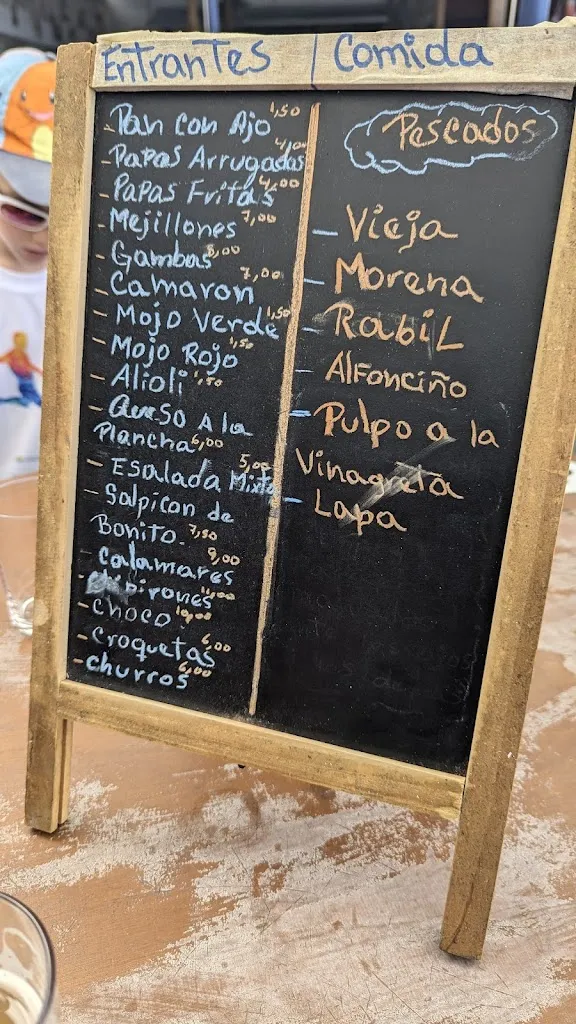 Entrantes | Comida
- Pan con Ajo 1,50
- Papas Arrugadas
- Papas Fritas 4,00
- Mejillones 7,00
- Gambas 8,00
- Camaron 7,00
- Mojo Verde 1,50
- Mojo Rojo 1,50
- Alioli 1,50
- Queso A la
Plancha 6,00
- Esalada Mixta 5,00
- Salpicon de
Bonito. 7,50
- Calamares 9,00
- Chipirones
- Choco
- Croquetas 6,00
- churros 6,00
Pescados
- Vieja
- Morena
- Rabil
- Alfonciño
- Pulpo a la
Vinagreta
- Lapa